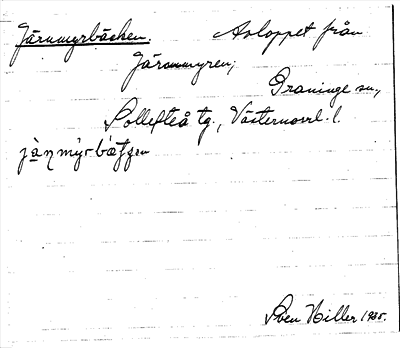 Järnmyrbäcken. Avloppet från
Järnmyren,
Graninge sn,
Sollefteå tg., Västernorrl. l.
Sven Hiller 1935.